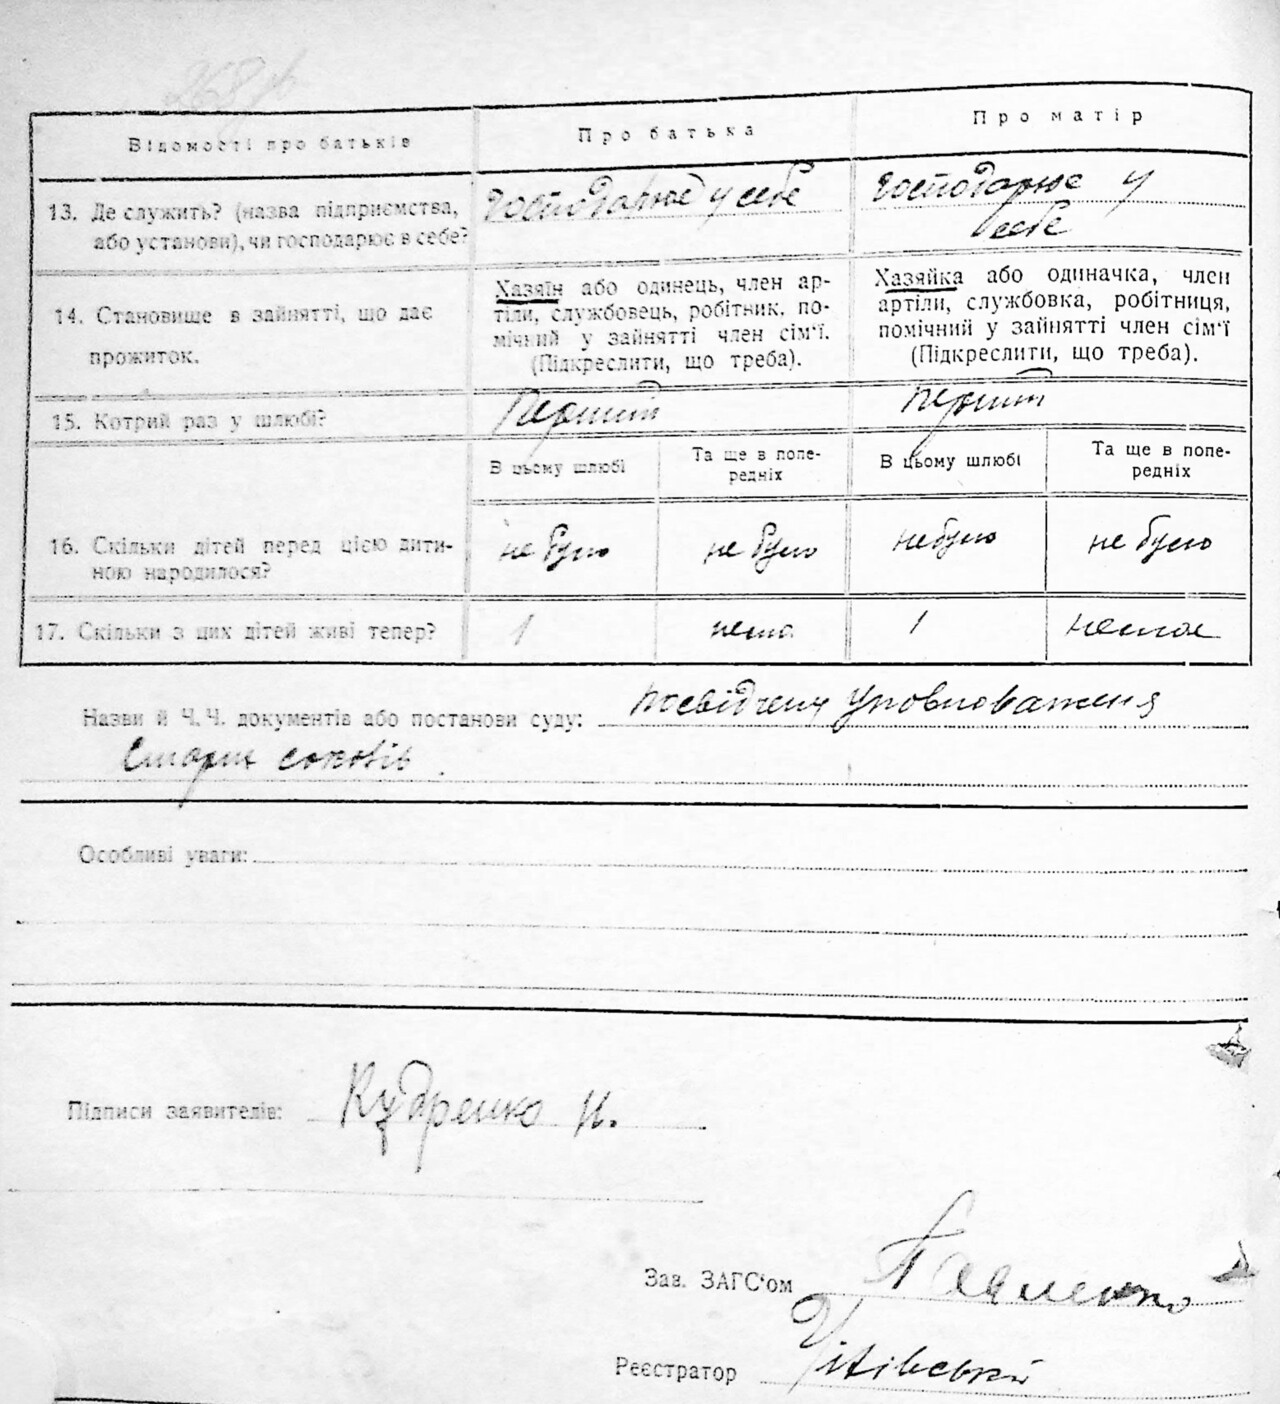 Відомості про батьків
Про батька
Про матір
13. Де служить? (назва підприємства,
або установи), чи господарює в себе?
господарює у себе
господарює у
себе
14. Становище в зайнятті, що дає
прожиток.
Хазяїн або одинець, член ар-
тіли, службовець, робітник, по-
мічний у зайнятті член сім'ї.
(Підкреслити, що треба).
Хазяйка або одиначка, член
артіли, службовка, робітниця,
помічний у зайнятті член сім'ї
(Підкреслити, що треба).
15. Котрий раз у шлюбі?
Перший
Перший
В цьому шлюбі
Та ще в попе-
редніх
В цьому шлюбі
Та ще в попе-
редніх
16. Скільки дітей перед цією дити-
ною народилося?
не було
не було
небуло
не було
17. Скільки з цих дітей живі тепер?
1
нема
1
немає
Назви й Ч.Ч. документів або постанови суду: посвідченя уповноваженя
Особливі уваги:
Підписи заявителів: Кудренко И.
Зав. ЗАГС'ом Павленко
Реєстратор